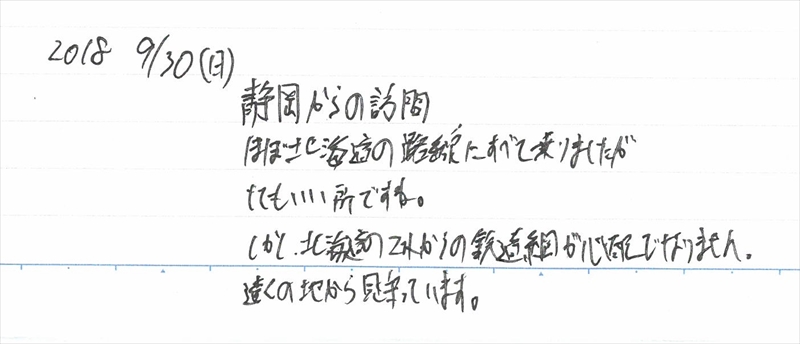 2018 9/30(日)
静岡からの訪問
ほぼ北海道の路線にすべて乗りましたが
とてもいい所ですね。
しかし、北海道のこれからの鉄道網が心配でなりません。
遠くの地から見守っています。